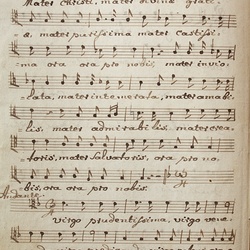 Mater Christi, mater divinæ grati
æ, mater purissima mater castissi
ma ora ora pro nobis, mater invio
lata, mater intemerata, mater amabi
lis, mater admirabilis, mater crea
toris, mater salvatoris, ora pro no
bis, ora ora pro nobis.
Andante
virgo prudentissima, virgo vene